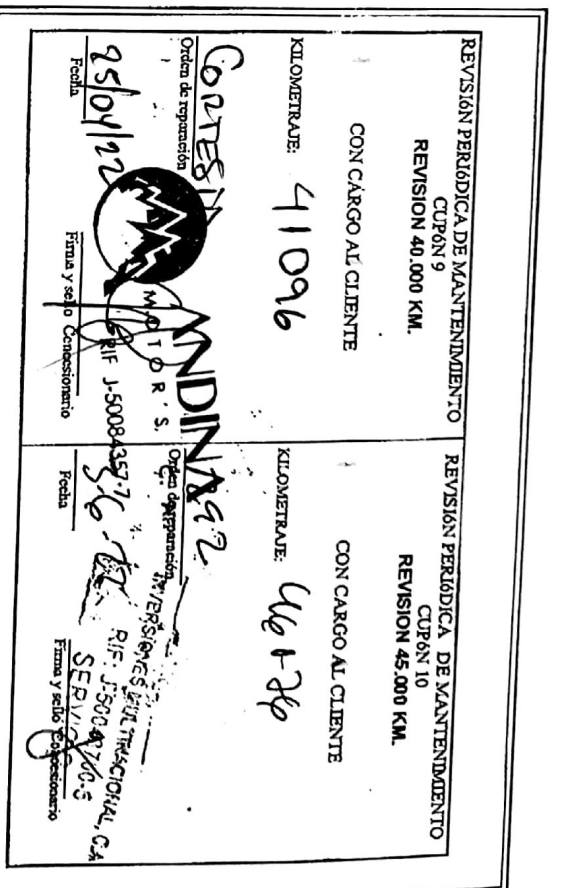 REVISIÓN PERIÓDICA DE MANTENIMIENTO
CUPÓN 9
REVISION 40.000 KM.
CON CARGO AL CLIENTE
KILOMETRAJE: 41096
CORTESIA
Orden de reparación
25/04/22
Fecha
Firma y sello Concesionario
ANDINA
MOTOR'S.
RIF J-50084357-7
REVISIÓN PERIÓDICA DE MANTENIMIENTO
CUPÓN 10
REVISION 45.000 KM.
CON CARGO AL CLIENTE
KILOMETRAJE:
892
Orden de reparación
Fecha
INVERSIONES MULTINACIONAL, C.A
SERVICIO
Firma y sello Concesionario